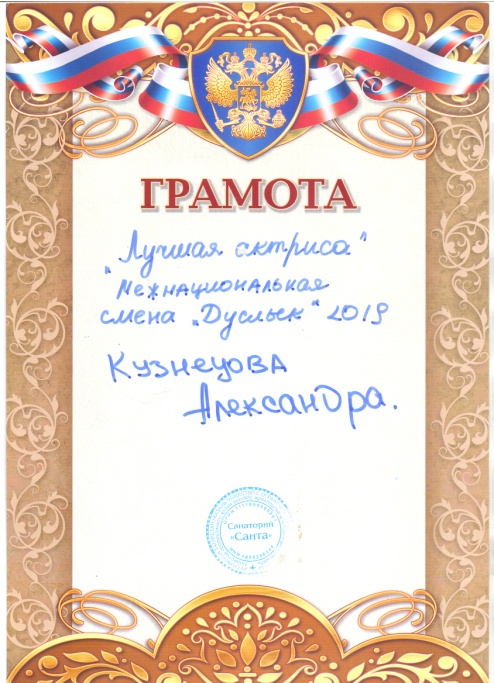 ГРАМОТА
„Лучшая актриса"
Межнациональная
смена „Дуслык" 2019
Кузнецова
Александра.
Санаторий
«Санта»